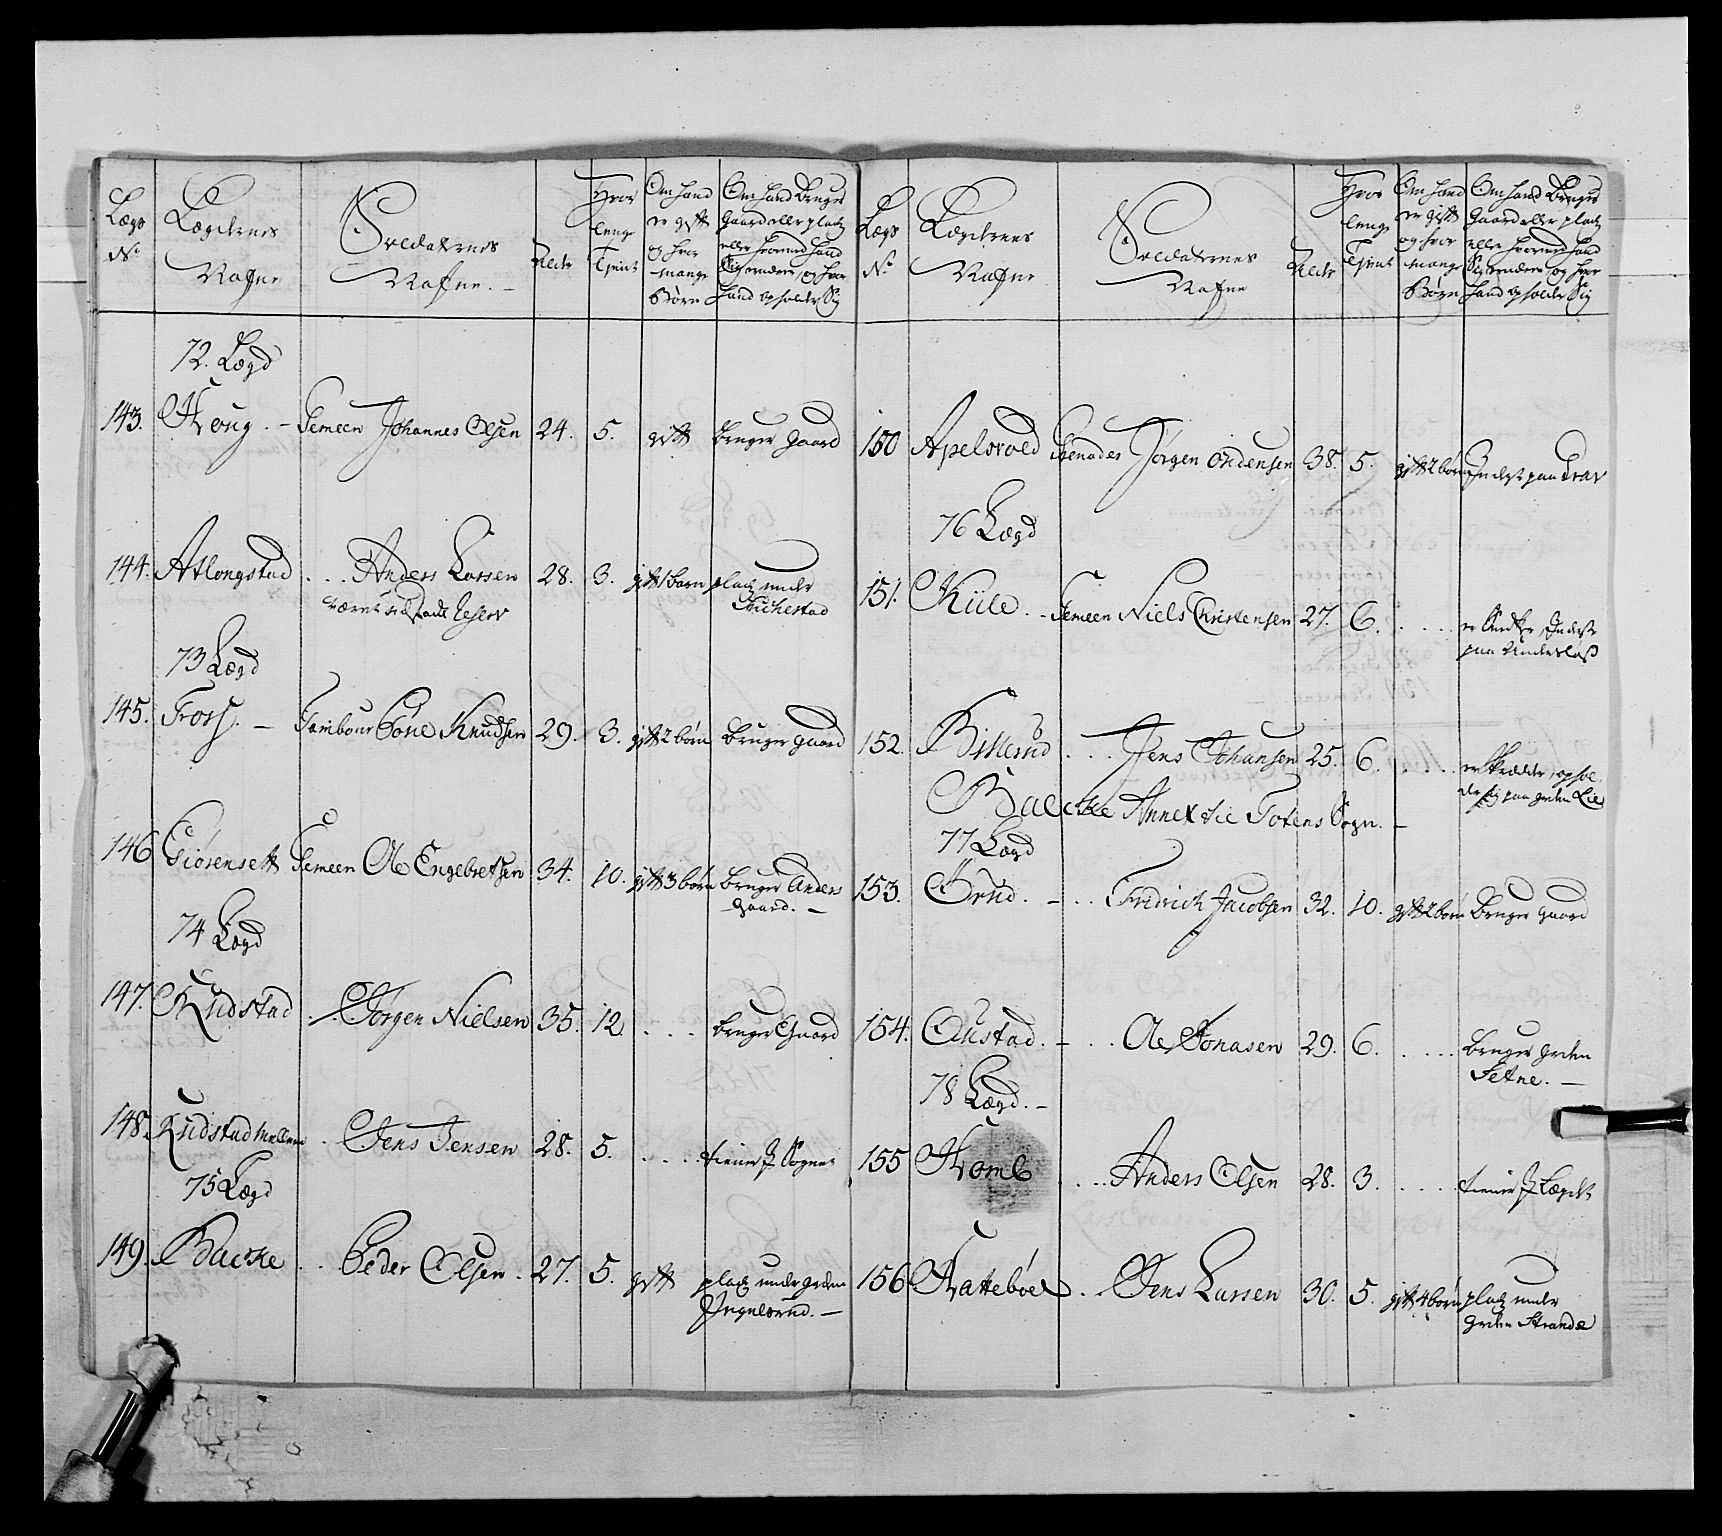 Lægs No
Lægdernes Nafne
Soldaternes Nafne.
Alder
Hvor lenge Tient
Om hand er gift og hvor mange Børn
Om hand Bruger Gaard eller plads eller hvormed hand Sig ernærer, og hvor hand opholder Sig
72. Lægd
143. Houg. - Gemeen Johannes Olsen 24. 5. gift bruger gaard
144. Atlongstad ... Anders Larsen 28. 3. gift 1 barn plads under
73 Lægd
145. Tross. - Tambour Tosten Knudsen 29. 3. gift 2 børn bruger gaard
146 Giørensett Gemeen Ole Engebretsen 34. 10. gift 3 børn bruger Anders
gaard. -
74 Lægd
147. Rudstad . . Jørgen Nielsen 35. 12. .... bruger Gaard
148. Rudstad Mellem . Jens Jensen 28. 5. .... tiener J Sognet
75 Lægd
149. Backe . . Peder Olsen. 27. 5. gift plads under grden
Lægs No
Lægdernes Nafne
Soldaternes Nafne
Alder
Hvor lenge Tient
Om hand er gift og hvor mange Børn
Om hand Bruger Gaard eller plads eller hvormed hand Sig ernærer og hvor hand opholder Sig
150 Apelsvold Grenader Jørgen Andersen 38. 5. gift 2 børn Inderst paa
76 Lægd
151. Kiile. - Gemeen Niels Christensen 27. 6. ....
152. Billerud ... Jens Johansen 25. 6. .... er Skredder, ophol
der sig paa grden Lie
Balcke Annex til Totens Sogn. -
77 Lægd
153. Ørud. - . . Fridrich Jacobsen 32. 10. gift 2 børn Bruger gaard
154. Oustad. - ... Ole Jonasen 29. 6. .... bruger grden
Setne. -
78 Lægd. -
155 Homb .... Anders Olsen 28. 3. .... tiener J Lægdet
156 Hattebøel . . Jens Larsen 30. 5. gift 4 børn plads under
grden Strande